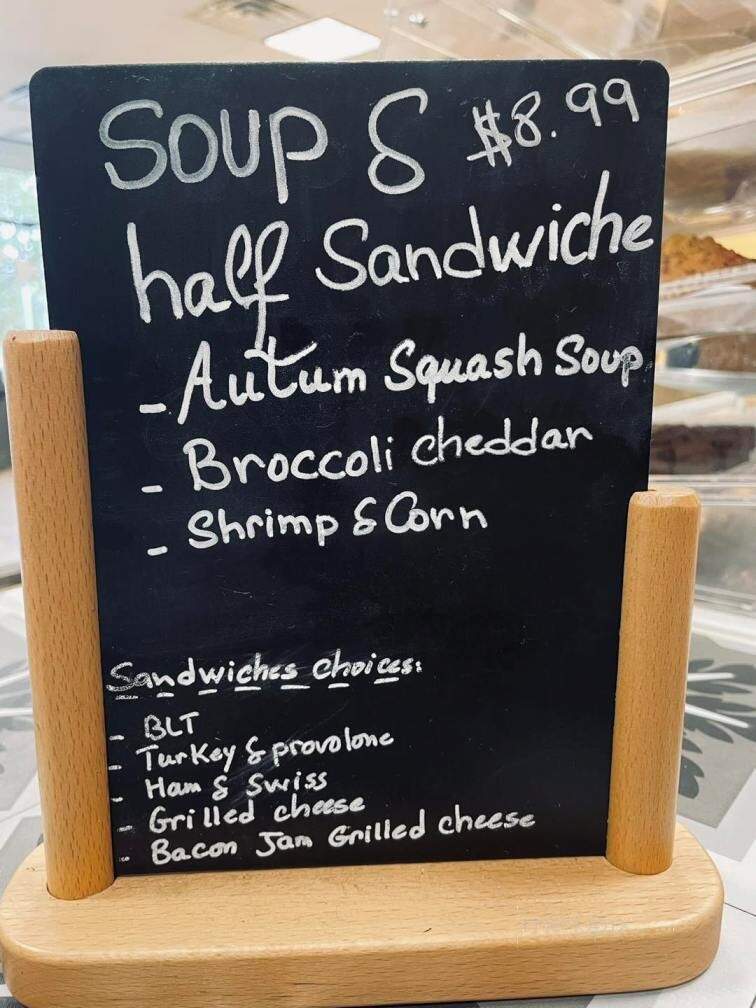 Soup & $8.99
half Sandwiche
- Autum Squash Soup
- Broccoli cheddar
- Shrimp & Corn
Sandwiches choices:
- BLT
- Turkey & provolone
- Ham & Swiss
- Grilled cheese
- Bacon Jam Grilled cheese